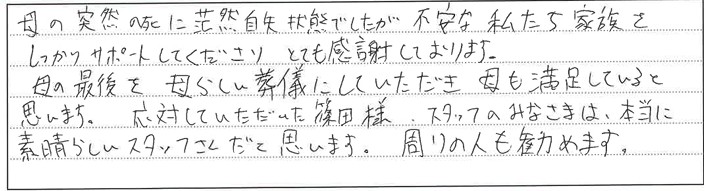 母の突然の死に茫然自失状態でしたが 不安な私たち家族を
しっかりサポートしてくださり とても感謝しております。
母の最後を 母らしい葬儀にしていただき 母も満足していると
思います。 応対していただいた篠田様、スタッフのみなさまは、本当に
素晴らしいスタッフさんだと思います。 周りの人も勧めます。